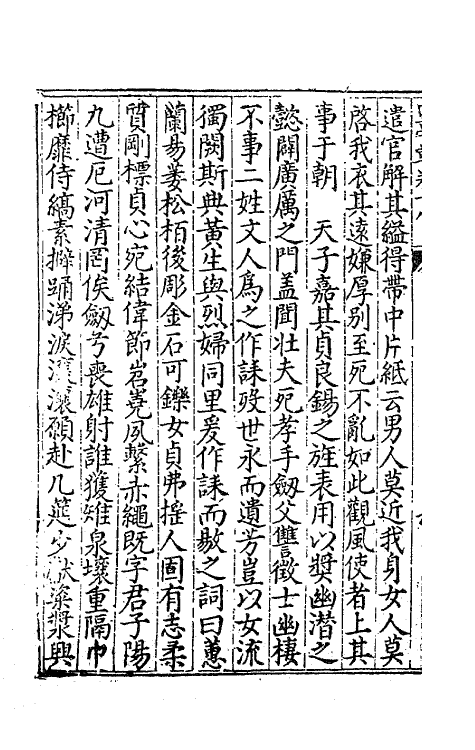 遣官解其縊得帶中片紙云男人莫近我身女人莫
啓我衣其遠嫌厚别至死不亂如此觀風使者上其
事于朝　天子嘉其貞良錫之旌表用以奬幽潜之
懿闢廣厲之門盖聞壮夫死孝手劒父讐徵士幽棲
不事二姓文人爲之作誄歿世永而遺芳豈以女流
獨闕斯典黃生與烈婦同里爰作誄而敭之詞曰蕙
蘭易萎松栢後彫金石可鑠女貞弗揺人固有志柔
質剛標貞心宛結偉節岧嶤夙繫赤繩既字君子陽
九遭厄河清罔俟劒兮喪雄射誰獲雉泉壤重隔巾
櫛靡侍縞素擗踊涕淚滂願赴几筵少漿與